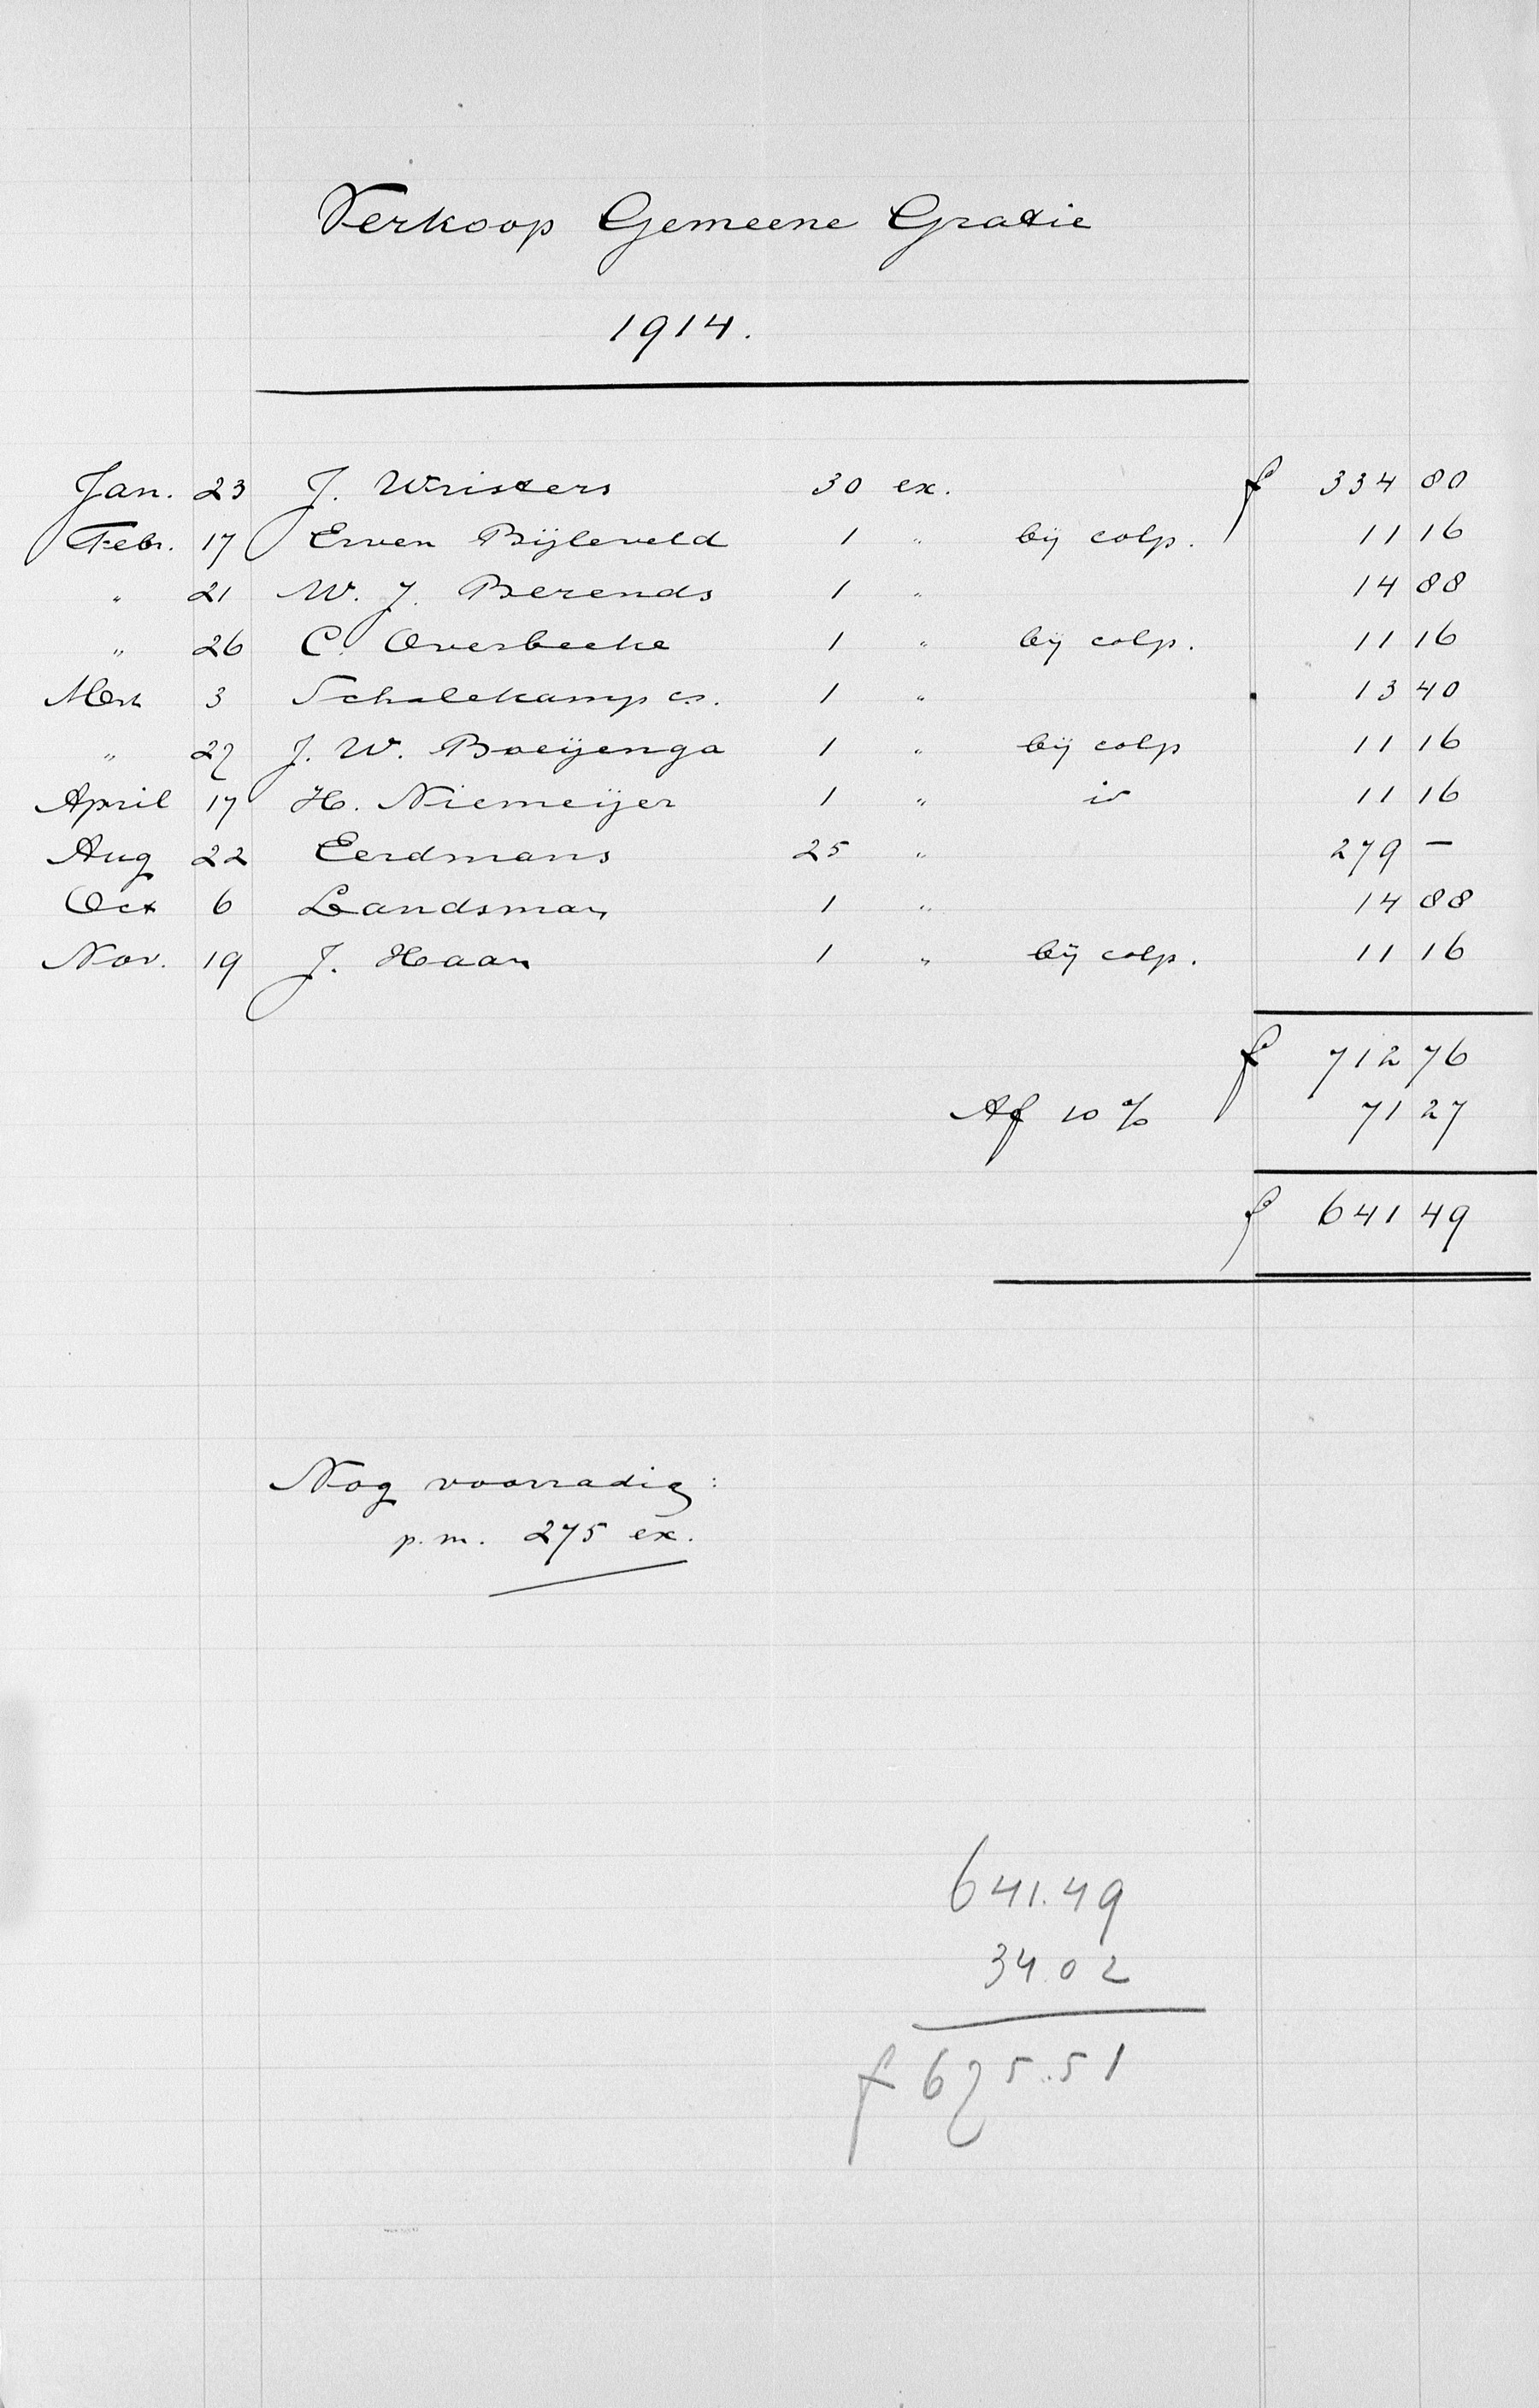 Verkoop Gemeene Gratie
1914.
Jan. 23 J. Wristers 30 ex. f 334 80
Febr. 17 Erven Bijleveld 1 " bij colp. 11 16
" 21 W. J. Berends 1 " 14 88
" 26 C. Overbeeke 1 " bij colp. 11 16
Mrt 3 Schalekamp cs. 1 " 13 40
" 27 J. W. Boeijenga 1 " bij colp 11 16
April 17 H. Niemeijer 1 " id 11 16
Aug 22 Eerdmans 25 " 279 —
Oct 6 Landsman 1 " 14 88
Nov. 19 J. Haan 1 " bij colp. 11 16
f 712 76
Af 10 % 71 27
f 641 49
Nog voorradig:
p.m. 275 ex.
641.49
34.02
f 675.51